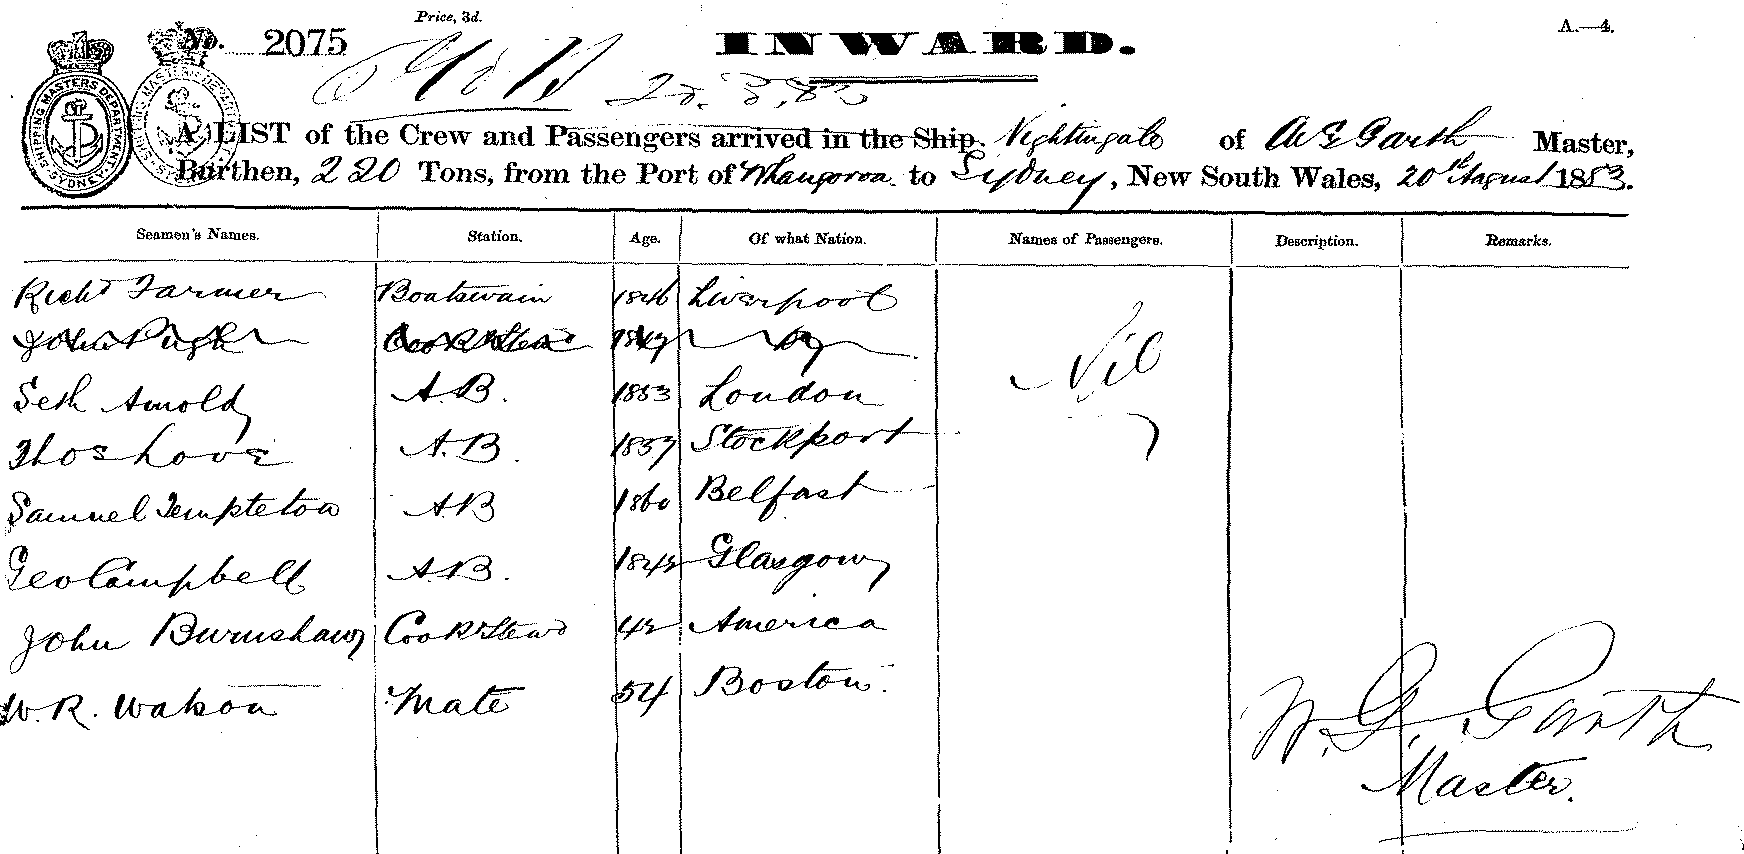 Price, 3d.
No. 2075
INWARD.
A.—4.
A LIST of the Crew and Passengers arrived in the Ship Nightingale of W G Garth Master,
Burthen, 220 Tons, from the Port of Whangaroa to Sydney, New South Wales, 20th August 1883.
SHIPPING MASTERS DEPARTMENT SYDNEY
Seamen's Names. Station. Age. Of what Nation. Names of Passengers. Description. Remarks.
Richd Farmer Boatswain 1846 Liverpool
John Pugh Cook & Stewd
Seth Arnold A.B. 1853 London Nil
Thos Love A.B. 1857 Stockport
Samuel Templeton A.B 1860 Belfast
Geo Campbell A.B. Glasgow
John Burnshaw Cook & Stewd 42 America
W. R. Watson Mate 54 Boston
W. G. Garth
Master.